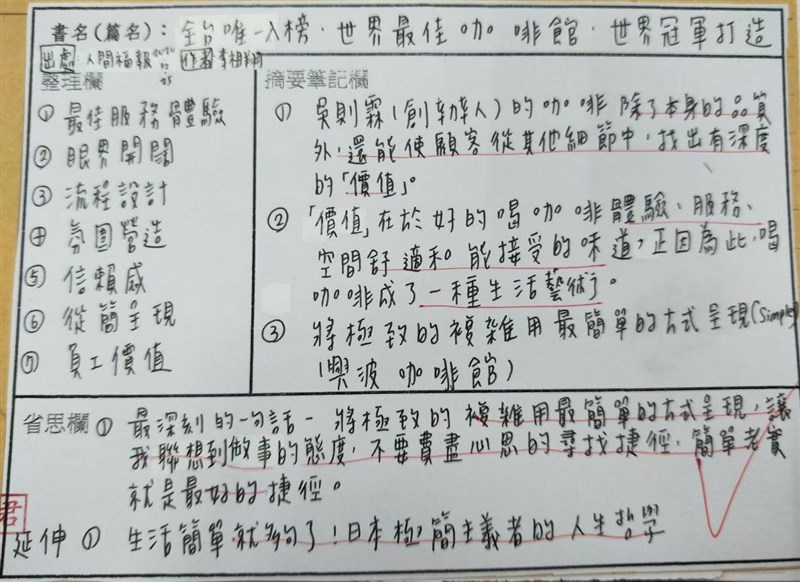 書名(篇名)：全台唯一入榜．世界最佳咖啡館．世界冠軍打造
出處：人間福報 作者 李祖翔
整理欄
① 最佳服務體驗
② 眼界開闊
③ 流程設計
④ 氛圍營造
⑤ 信賴感
⑥ 從簡呈現
⑦ 員工價值
摘要筆記欄
① 吳則霖(創辦人)的咖啡除了本身的品質
外，還能使顧客從其他細節中，找出有深度
的「價值」。
② 「價值」在於好的喝咖啡體驗、服務、
空間舒適和能接受的味道，正因為此，喝
咖啡成了一種生活藝術了。
③ 將極致的複雜用最簡單的方式呈現(Simple)
(興波咖啡館)
省思欄 ① 最深刻的一句話－將極致的複雜用最簡單的方式呈現，讓
我聯想到做事的態度，不要費盡心思的尋找捷徑，簡單老實
就是最好的捷徑。
君
延伸 ① 生活簡單就夠了！日本極簡主義者的人生哲學